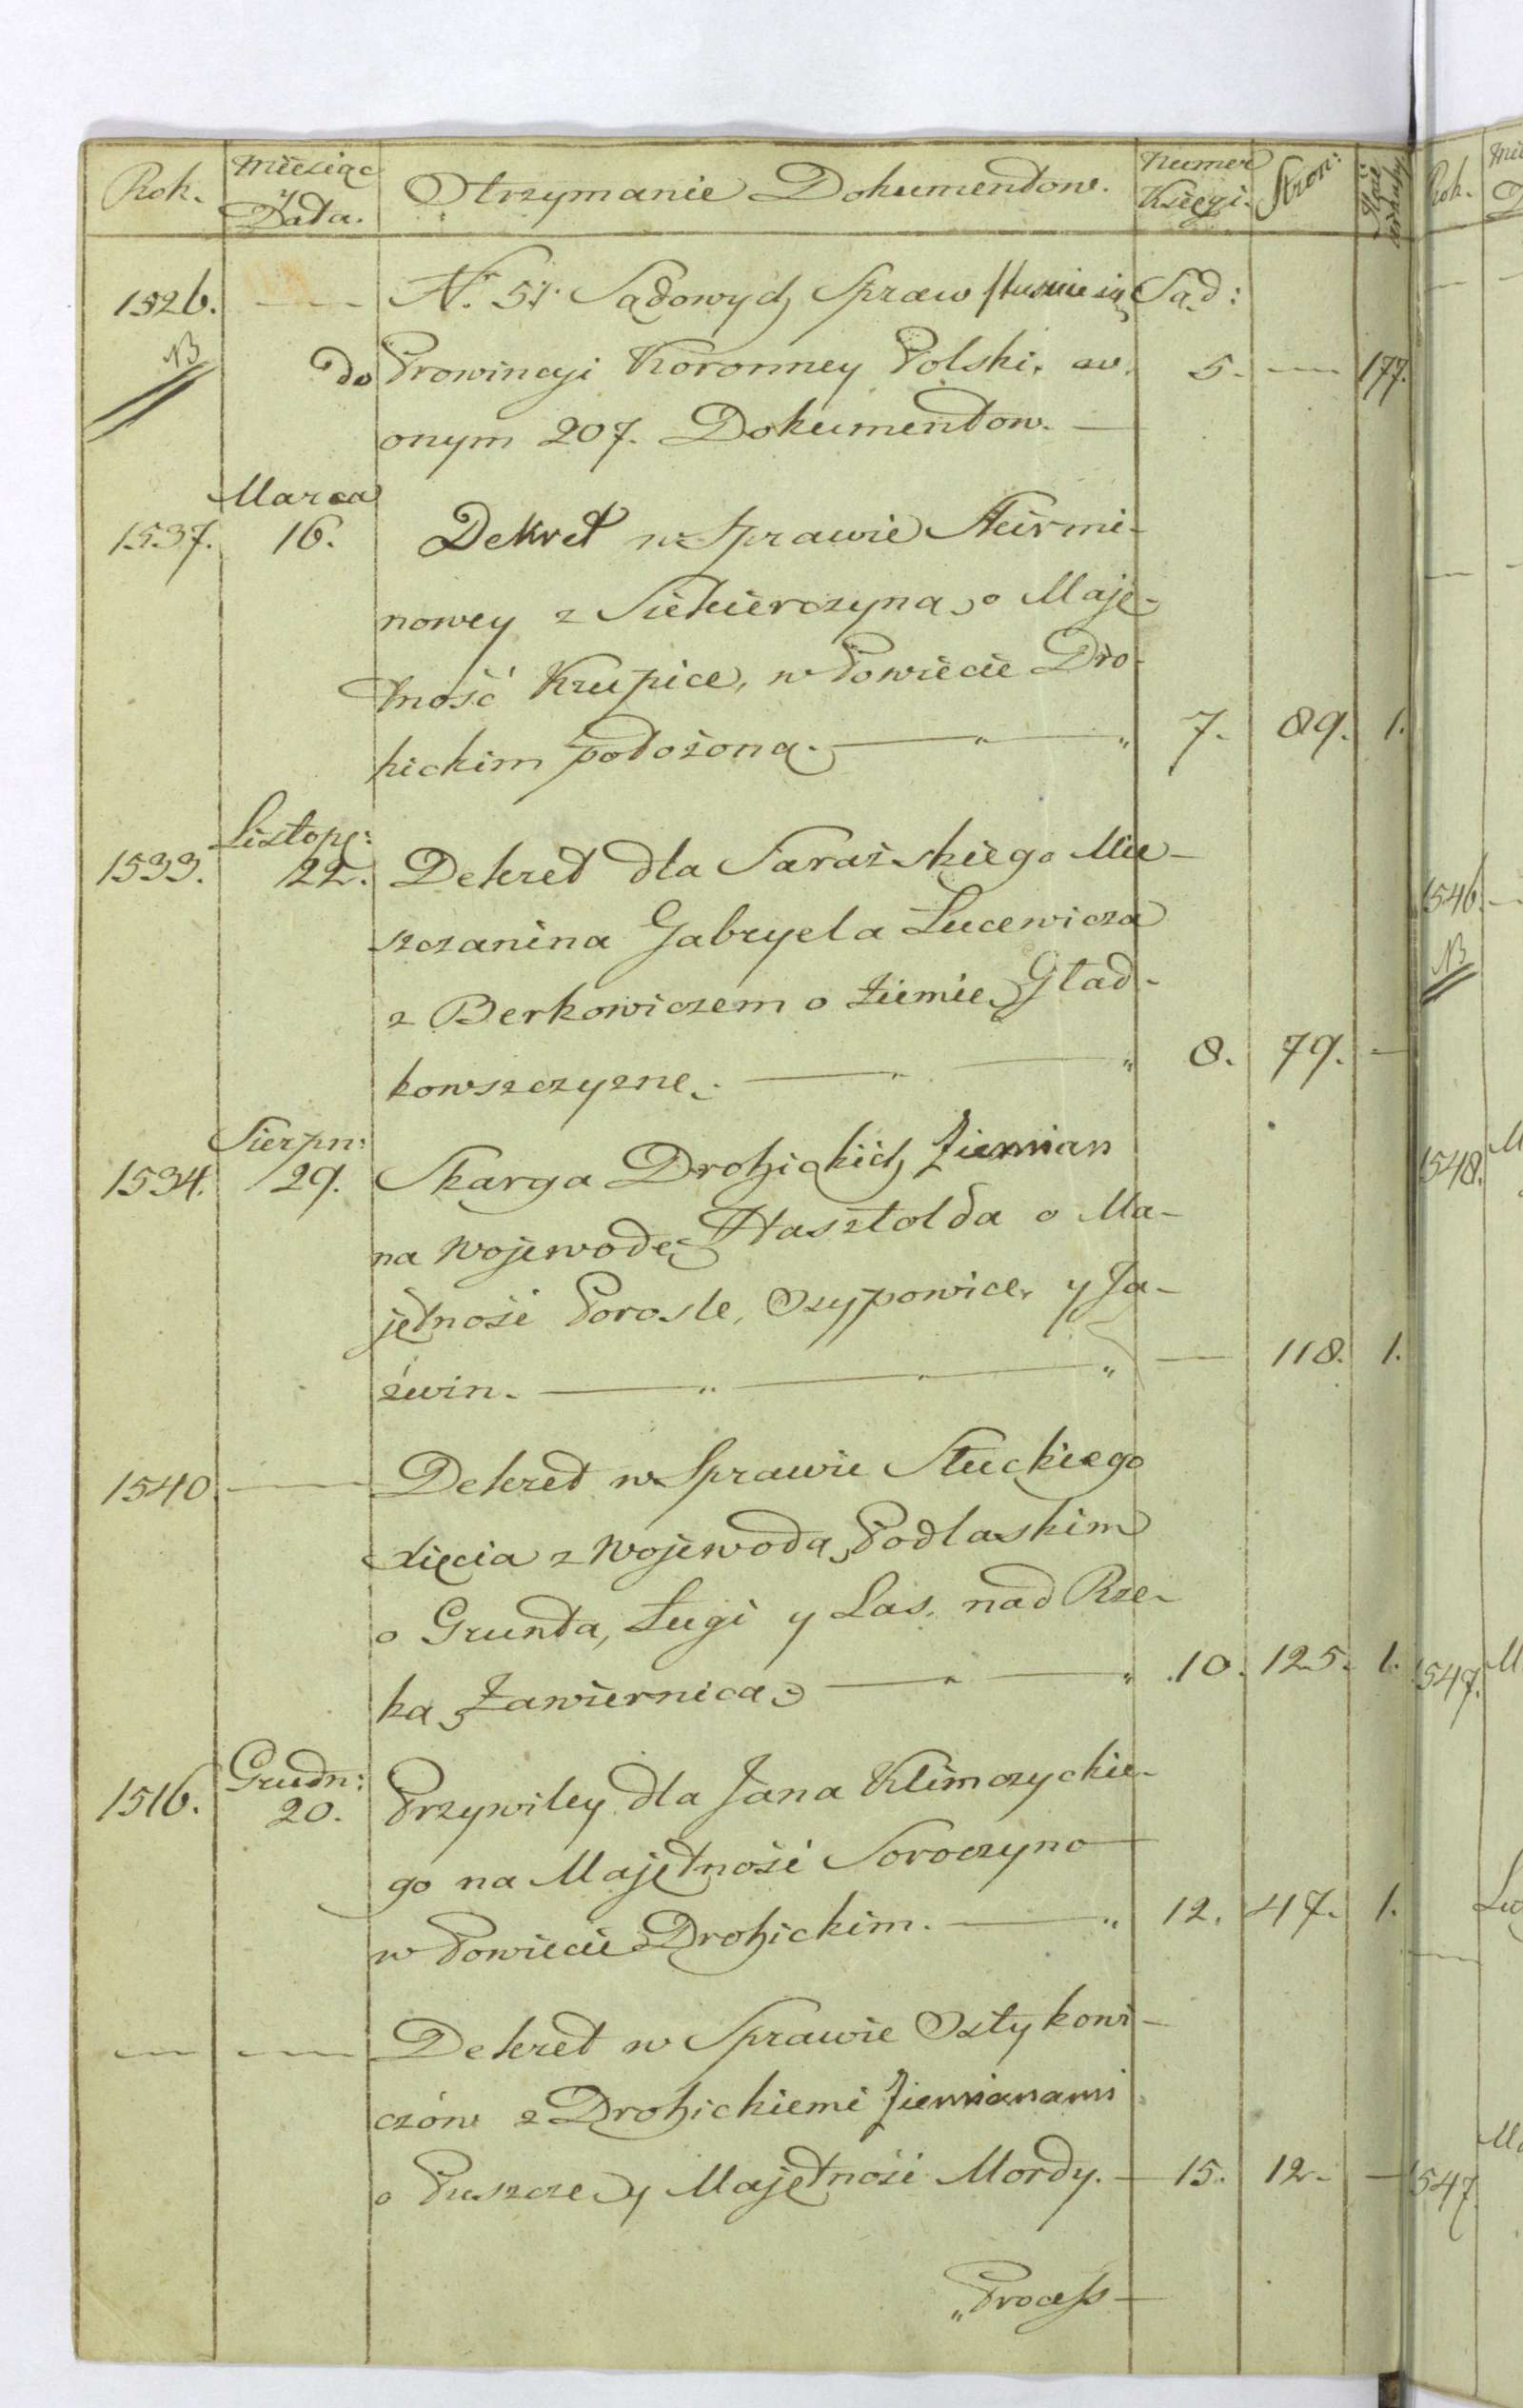 Rok. Miesiąc y Data. Otrzymanie Dokumentow. Numer Księgi. Stron:
1526. — N. 51. Sądowych Spraw stusuie się Sąd:
NB do Prowincyi Koronney Polski, w 5. — 177.
onym 207. Dokumentow. —
Marca
1537. 16. Dekret w Sprawie
nowey z Siekierczyna, o Maję-
tność Krupice, w Powiecie Dro-
hickim położoną. — " — " 7. 89. 1.
Listop:
1533. 22. Dekret dla Saraźskiego Mie-
szczanina Gabryela Lucewicza
z Berkowiczem o Ziemię Gład-
kowszczyznę. — " — " 8. 79. —
Sierpn:
1534. 29. Skarga Drohickich Ziemian
na Wojewodę Hasztolda o Ma-
jętność Porosle, Osypowice, y Ja-
źwin. — " — " — 118. 1.
1540. — Dekret w Sprawie Słuckiego
Xięcia z Wojewodą Podlaskim
o Grunta, Ługi y Las, nad Rze-
ką Żawiernicą — " — " 10. 125. 1.
Grudn:
1516. 20. Przywiley dla Jana Klimczyckie-
go na Majętność Soroczyno
w Powiecie Drohickim. — " 12. 47. 1.
— — Dekret w Sprawie Osztykowi-
czów z Drohickiemi Ziemianami
o Puszczę y Majętność Mordy. — 15. 12. —
"Process —
Rok.
1546.
NB
1548.
1547.
1547.